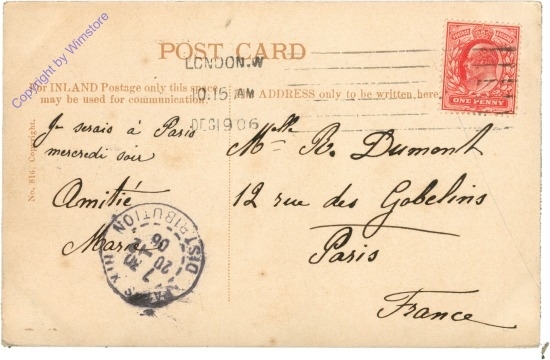 Copyright by Wimstore
POST CARD
LONDON.W
10.15 AM
DEC 19 06
For INLAND Postage only this space
may be used for communication.
The ADDRESS only to be written here.
ONE PENNY
No. 816. Copyright.
Je serais à Paris
mercredi soir
Amitié
Marie
Melle R. Dumont
12 rue des Gobelins
Paris
France
PARIS XIII
DISTRIBUTION
7 30
20
06